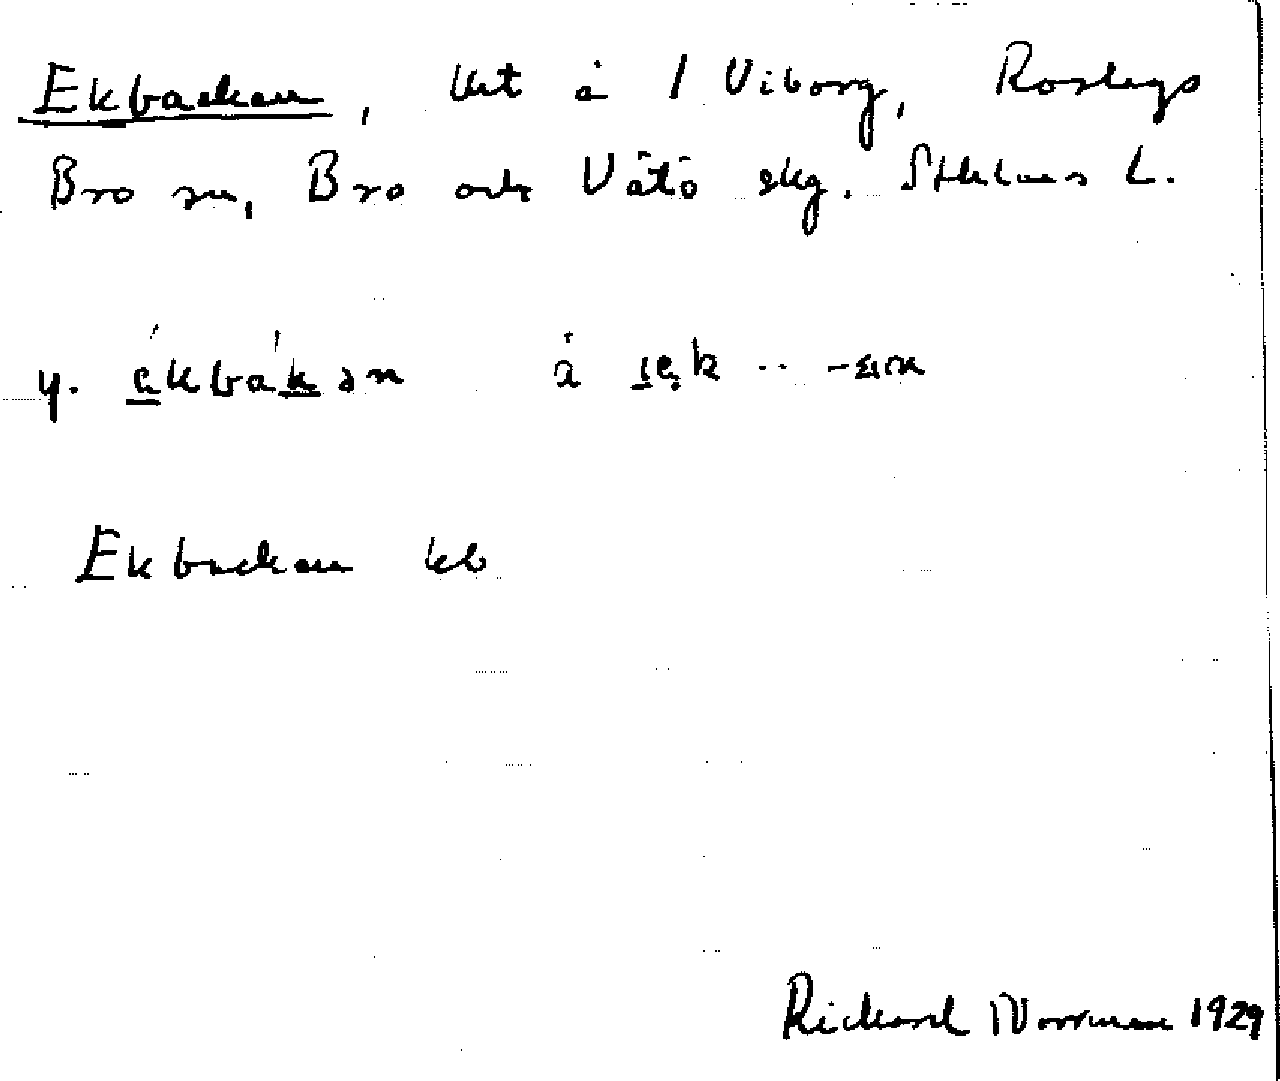 Ekbacken, lht å 1 Viborg, Roslags
Bro sn, Bro och Vätö skg. Sthlms L.
y. ekbakən
Ekbacken kb
Rickard Norrman 1929